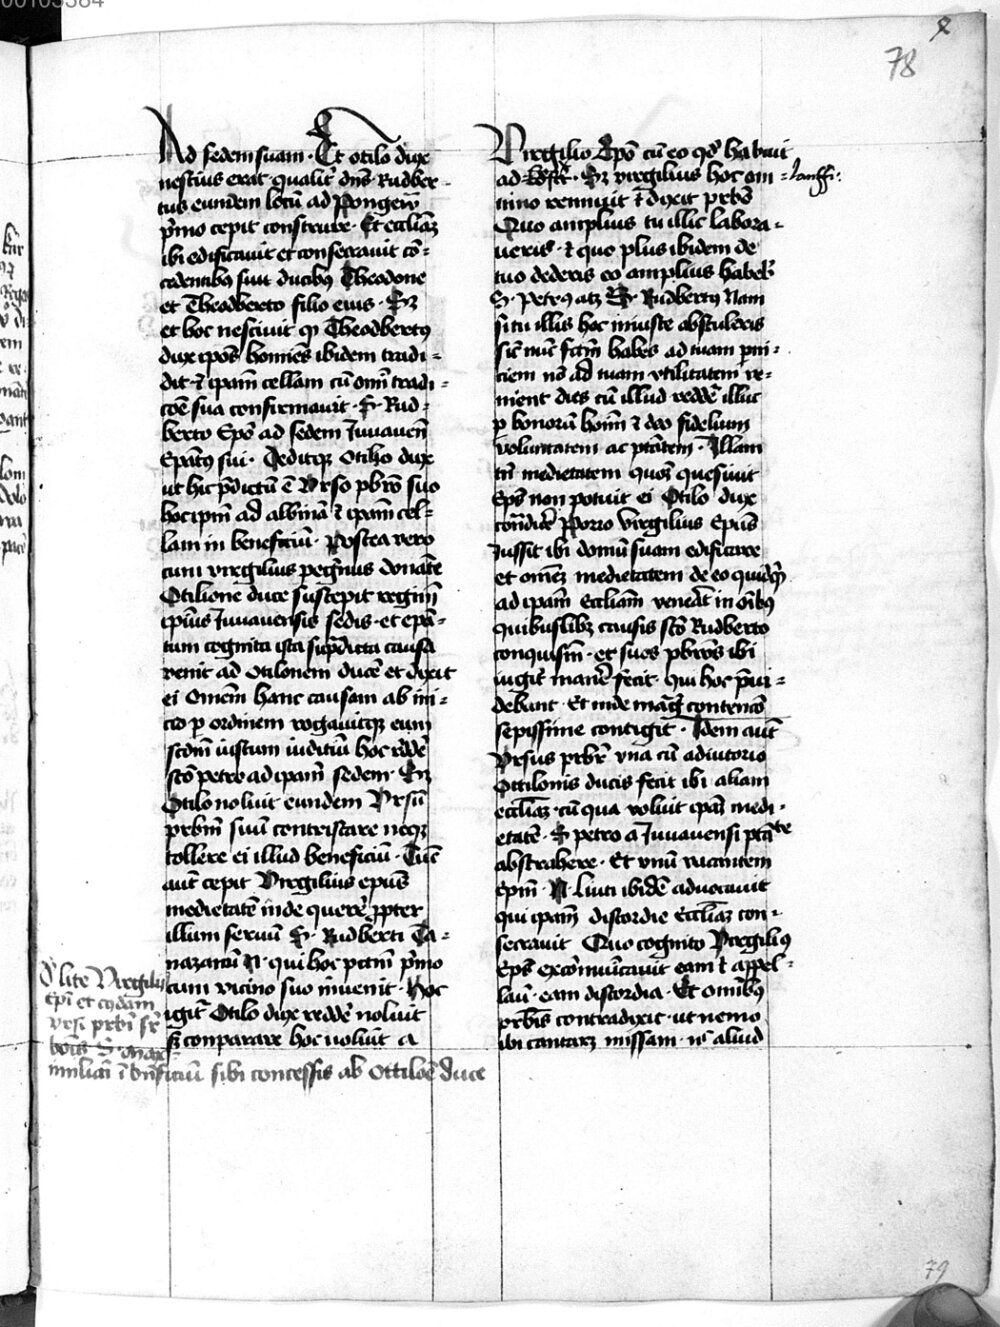 78
Ad sedem suam · Et otilo dux
nescius erat · qualit' dn̄s Rudber-
tus eundem locū ad Pongew
p̄mo cepit construere · Et eccl̄iaȝ
ibi edificauit et consecrauit cō-
cedentibꝯ siui ducibꝯ Theodone
et Theodberto filio eius · Sȝ
et hoc nesciuit ꝙ Theodbertꝯ
dux ip̄os homīes ibidem tradi-
dit · ⁊ ip̄am cellam cū om̄i tradi-
cōe sua confirmauit · S · Rud-
berto Ep̄o ad sedem Juuauen̄
Ep̄atꝯ sui · Deditqȝ Otilio dux
ut hic p̄dictū ē Vrso pb̄ro suo
hoc ip̄m ad albinā ⁊ ip̄am cel-
lam in beneficiū · Postea vero
cum virgilius peḡnus donāte
Otilione duce suscepit regimē
ip̄ius Juuauensis sedis · et ep̄a-
tum cognita ista sup̄dicta causa
venit ad Otilonem ducē et dixit
ei Omēm hanc causam ab ini-
cio ꝑ ordinem rogauitqȝ eum
scdm̄ iustum iuditiū hoc rēdde
sc̄o petro ad ip̄am sedem · Sȝ
Otilo noluit eundem Vrsū
prb̄m suū contristare neqȝ
tollere ei illud beneficiū · Tūc
aut̄ cepit Virgilius ep̄us
medietatē inde querē ꝓpter
illum seruū S · Rudberti To-
nazanū N · qui hoc p̄cam p̄mo
cum vicino suo inuenit · Hoc
igit̄ Otilo dux reddē noluit
sȝ comparare hoc uoluit a
Virgilio Ep̄o cū eo qd̄ habuit
ad · Sȝ virgilius hoc om-
nino rennuit ⁊ dixit prb̄o
Quo amplius tu illic labora-
ueris · ⁊ quo plus ibidem de
tuo dederis eo amplius habeb̄
S · Petrꝯ atqȝ S · Rudbertꝯ Nam
si tu illis hoc iniuste abstuleris
sic̄ nūc fc̄m habes ad tuam ꝑni-
ciem nō ad tuam vtilitatem ve-
nient dies cū illud reddē illuc
ꝑ bonorū homī ⁊ deo fidelium
voluntatem ac ptātem · Illam
tn̄ medietatem quoȝ quesiuit
Ep̄s non potuit ei Otilo dux
cōtradicē Porro Virgilius Ep̄us
Jussit ibi domū suam edificare
et om̄eȝ medietatem de eo quidq̄
ad ip̄am Eccl̄iam venerat in oībꝯ
quibuslibȝ causis sc̄o Rudberto
conquism̄ · et suos pb̄ros ibi
iugit̄ manē fecit · hui hoc p̄ui-
debant · Et inde maḡ contencō
sepissime contigit · Idem aut̄
Vrsus prb̄r vna cū adiutorio
Ottilonis ducis fecit ibi aliam
eccl̄iaȝ · cū qua voluit ip̄aȝ medi-
etatē · S · petro a Juuauensi ptāte
abstrahere · Et vnū vacantem
ep̄m · N · Liuti ibidē aduocauit
qui ip̄am discordie Eccl̄iaȝ con-
secrauit Quo cognito Virgiliꝯ
Ep̄s excōmunicauit eam ⁊ appel-
lauit eam discordia · Et omībꝯ
prb̄is contradixit · ut nemo
ibi cantarȝ missam · nō aliud
D' lite Virgilij
Ep̄i et cuidam
vrsi prb̄i sr̄
bōis S · max
miliani ī bn̄ficiū sibi concessis ab Ottilōe duce
79